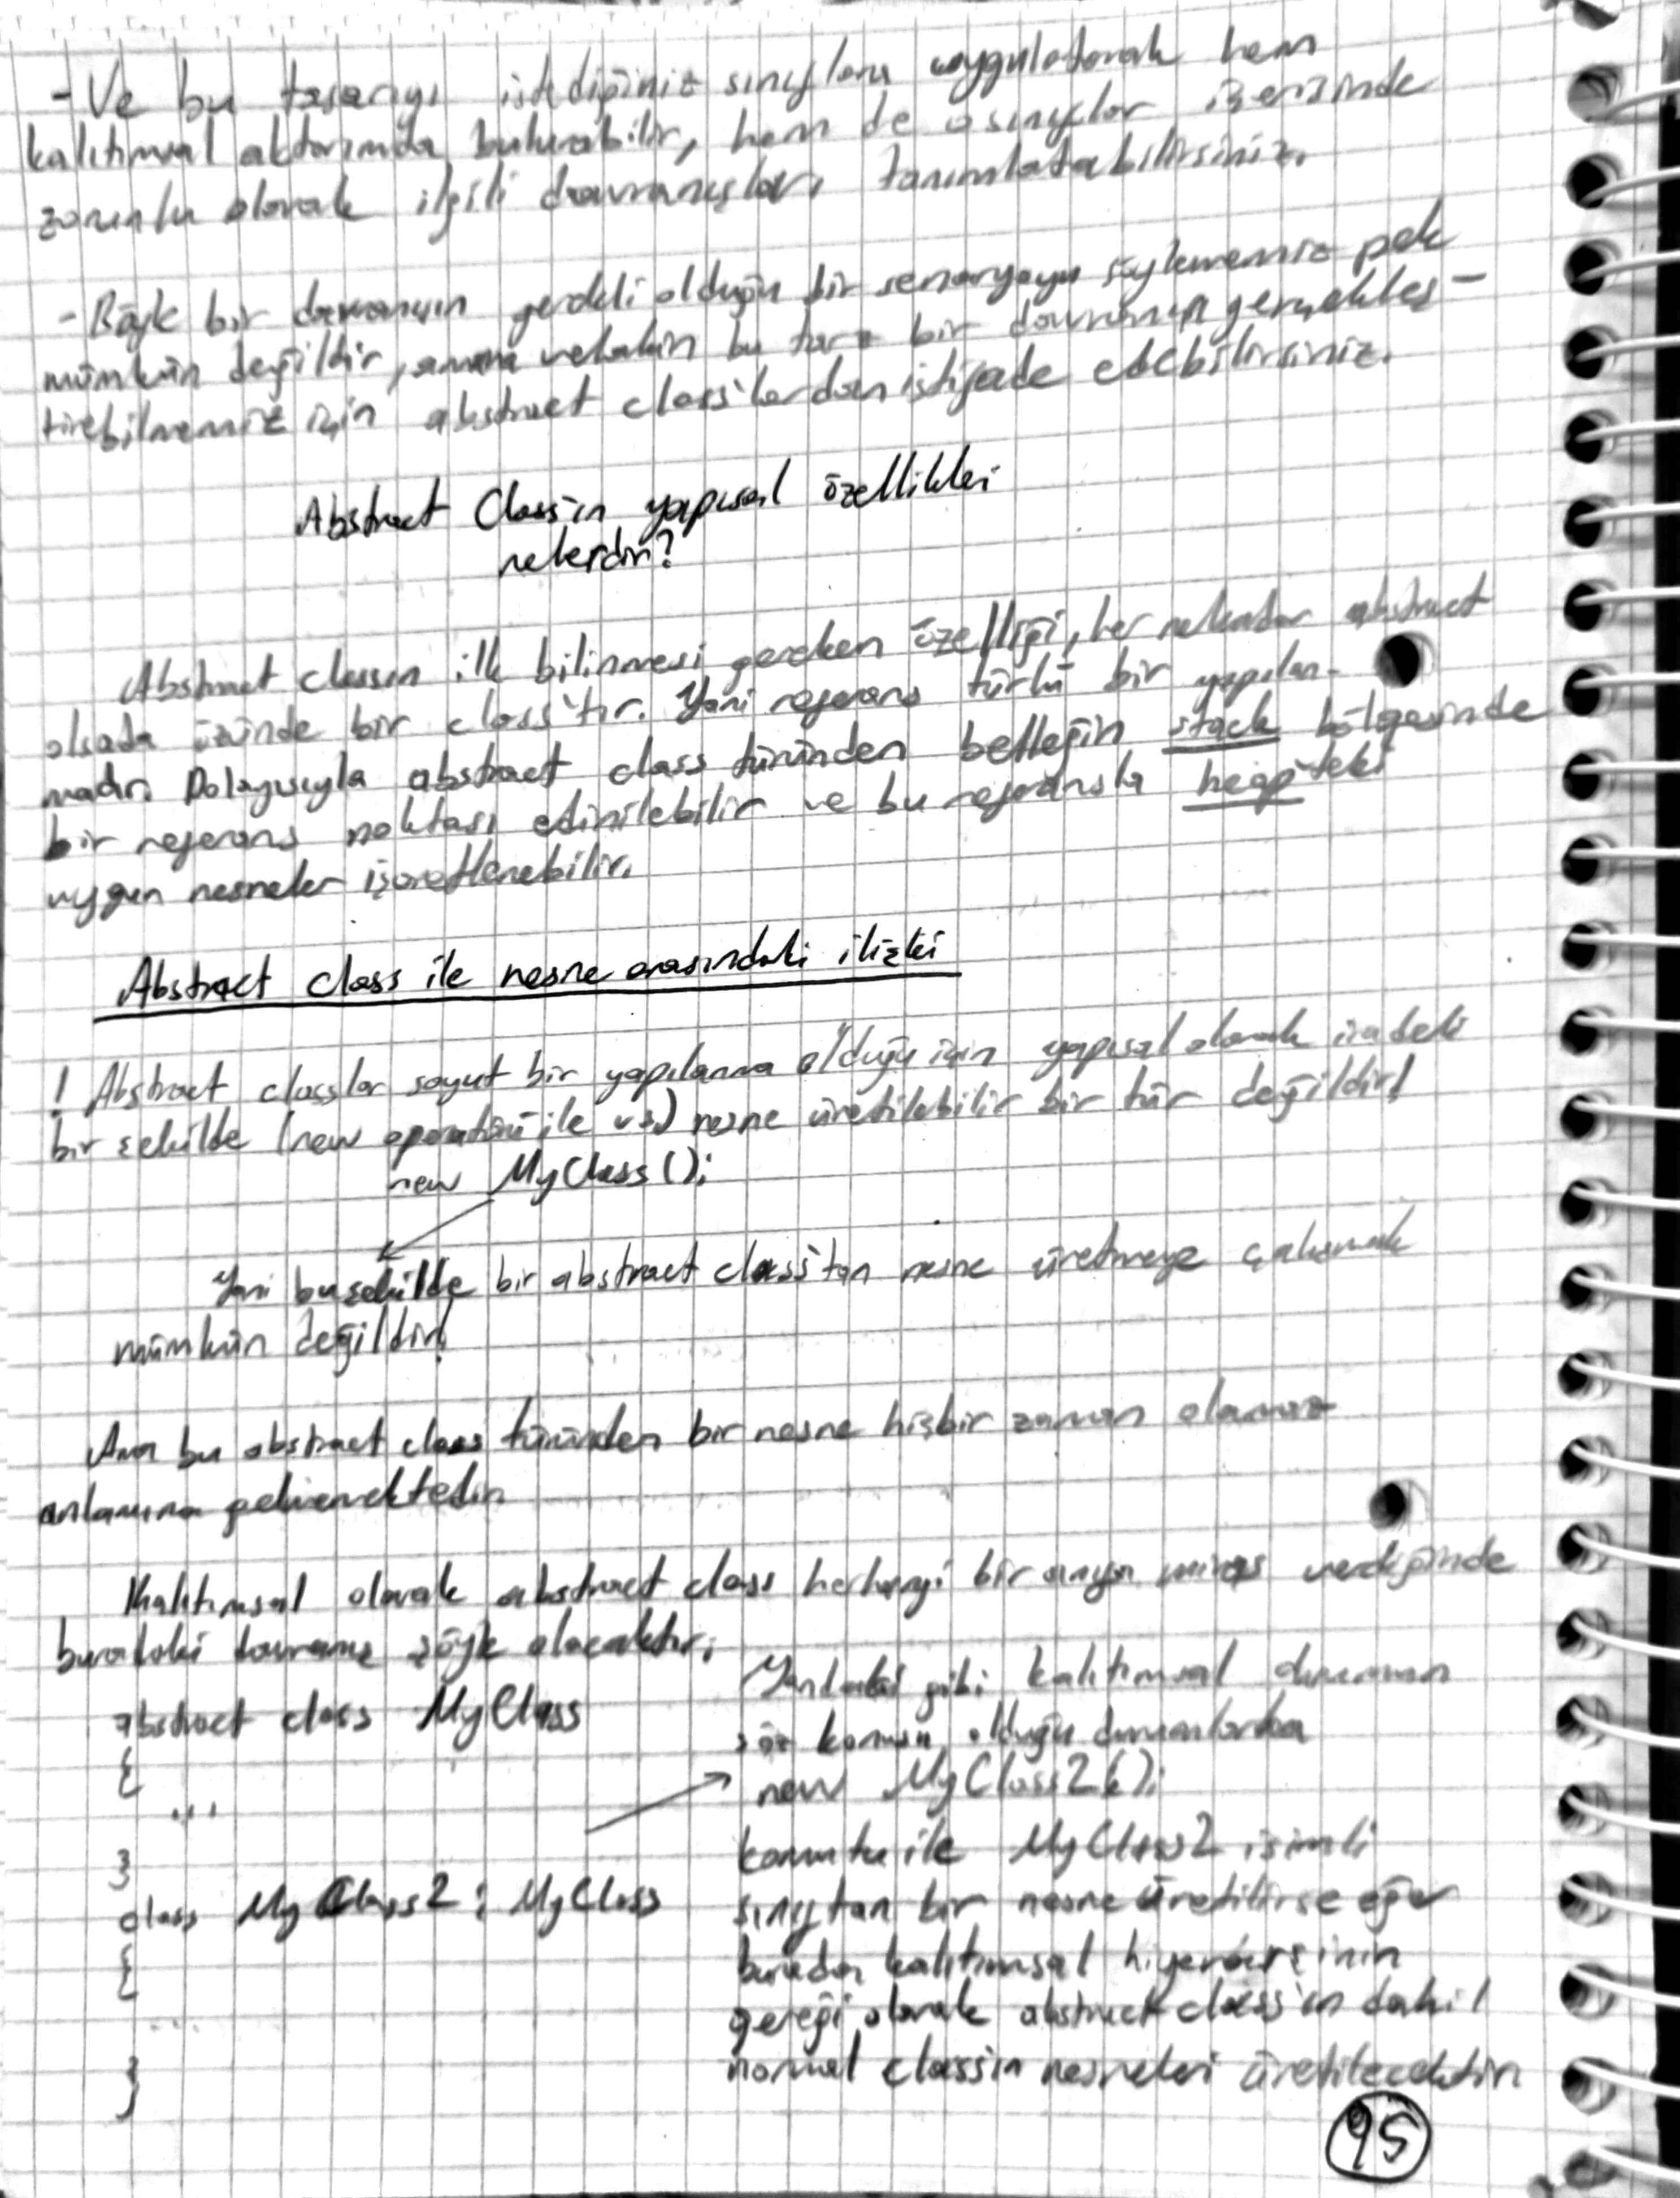 - Ve bu tasarıyı istediğiniz sınıflara uygulatarak hem
kalıtımsal aktarımda bulunabilir, hem de o sınıflar içerisinde
zorunlu olarak ilgili davranışları tanımlatabilirsiniz.
- Böyle bir davranışın gerekli olduğu bir senaryoyu söylememiz pek
mümkün değildir, amma velakin bu tarz bir davranışı gerçekleş-
tirebilmemiz için abstract class'lardan istifade edebilirsiniz.
Abstract Class'ın yapısal özellikleri
nelerdir?
Abstract classın ilk bilinmesi gereken özelliği, her nekadar abstract
olsada özünde bir class'tır. Yani referans türlü bir yapılan-
madır. Dolayısıyla abstract class türünden belleğin stack bölgesinde
bir referans noktası edinilebilir ve bu referansla heap'teki
uygun nesneler işaretlenebilir.
Abstract class ile nesne arasındaki ilişki
! Abstract classlar soyut bir yapılanma olduğu için yapısal olarak iradeli
bir şekilde (new operatörü ile vs.) nesne üretilebilir bir tür değildir!
new MyClass();
Yani bu şekilde bir abstract class'tan nesne üretmeye çalışmak
mümkün değildir!
Ama bu abstract class türünden bir nesne hiçbir zaman olamaz
anlamına gelmemektedir.
Kalıtımsal olarak abstract class herhangi bir sınıfa miras verdiğinde
buradaki davranış şöyle olacaktır;
abstract class MyClass
{
...
}
class MyClass2 : MyClass
{
...
}
Yandaki gibi kalıtımsal durumun
söz konusu olduğu durumlarda
new MyClass2();
komutu ile MyClass2 isimli
sınıftan bir nesne üretilirse eğer
burada kalıtımsal hiyerarşinin
gereği olarak abstract class'ın dahil
normal classın nesneleri üretilecektir
95